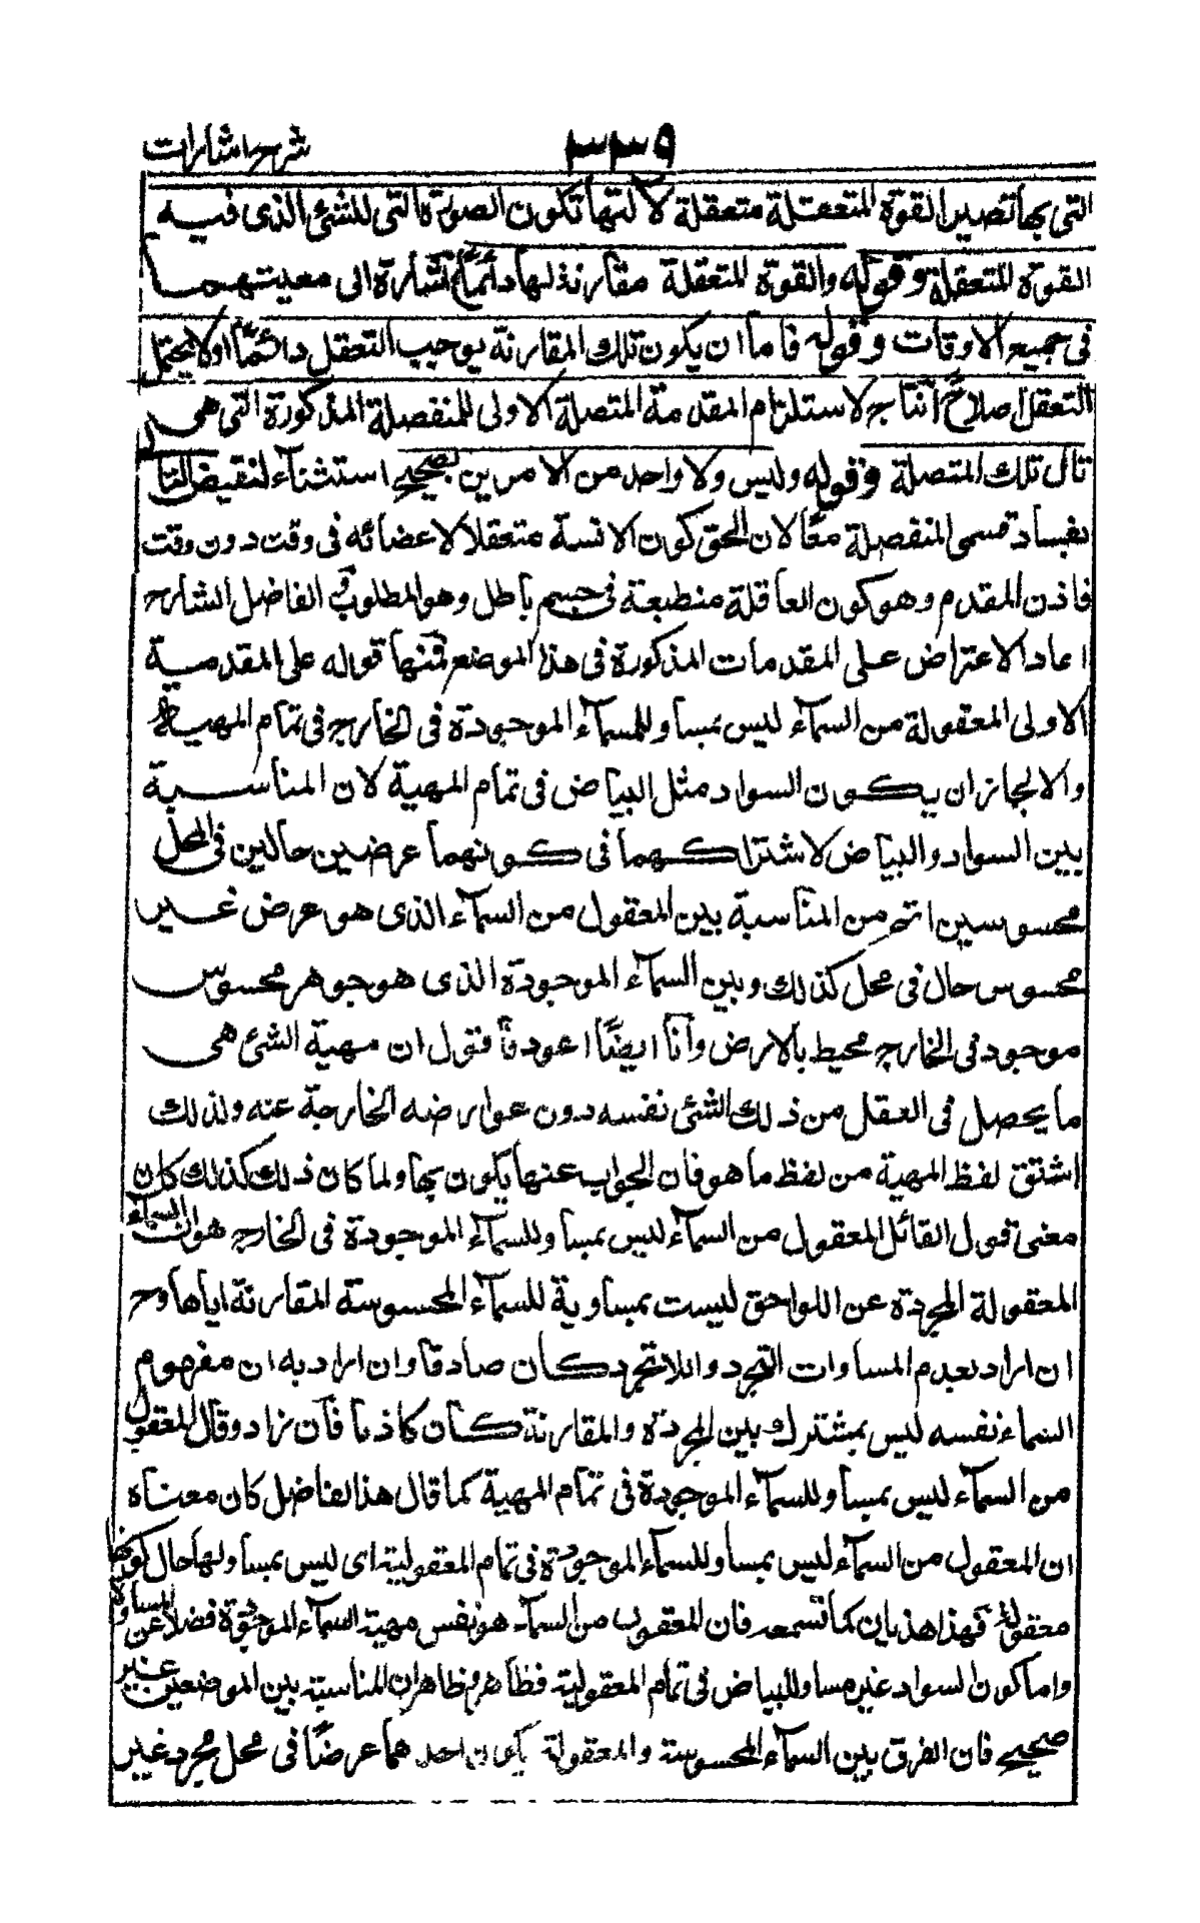 شرح اشارات
٣٣٩
التى بها تصير القوة المتعقلة متعقلة لآلتها تكون الصورة التى للشئ الذى فيه
القوة المتعقلة وقوله والقوة المتعقلة مقارنة لها دائماً اشارة الى معيتهما
فى جميع الاوقات وقوله فاما ان يكون تلك المقارنة يوجب التعقل دائماً او لا يحتمل
التعقل اصلاً انتاج لاستلزام المقدمة المتصلة الاولى للمنفصلة المذكورة التى هى
تال تلك المتصلة وقوله وليس ولا واحد من الامرين بصحيح استثناء لنقيض التا
بفساد قسمى المنفصلة معاً لان الحق كون الانسة متعقلا لاعضائه فى وقت دون وقت
فاذن المقدم وهو كون العاقلة منطبعة فى جسم باطل وهو المطلوب الفاضل الشارح
اعاد الاعتراض على المقدمات المذكورة فى هذا الموضع فمنها قوله على المقدمة
الاولى المعقولة من السمآء ليس بمساو للسمآء الموجودة فى الخارج فى تمام المهية
والا لجاز ان يكون السواد مثل البياض فى تمام المهية لان المناسبة
بين السواد والبياض لاشتراكهما فى كونهما عرضين حالين فى المحل
محسوسين اتم من المناسبة بين المعقول من السمآء الذى هو عرض غير
محسوس حال فى محل كذلك وبين السمآء الموجودة الذى هو جوهر محسوس
موجود فى الخارج محيط بالارض وانا ايضاً اعود فاقول ان مهية الشئ هى
ما يحصل فى العقل من ذلك الشئ نفسه دون عوارضه الخارجة عنه ولذلك
اشتق لفظ المهية من لفظ ما هو فان الجواب عنها يكون بها ولما كان ذلك كذلك كان
معنى قول القائل المعقول من السمآء ليس بمساو للسمآء الموجودة فى الخارج هو ان السمآء
المعقولة المجردة عن اللواحق ليست بمساوية للسمآء المحسوسة المقارنة اياها وح
ان اراد بعدم المساوات التجرد واللاتجرد كان صادقا وان اراد به ان مفهوم
السماء نفسه ليس بمشترك بين المجردة والمقارنة كان كاذبا فان زاد وقال المعقول
من السمآء ليس بمساو للسمآء الموجودة فى تمام المهية كما قال هذا الفاضل كان معناه
ان المعقول من السمآء ليس بمساو للسمآء الموجودة فى تمام المعقولية اى ليس بمساو لها حال كونها
معقولة فهذا هذيان كما تسمعه فان المعقول من السمآء هو نفس مهية السمآء الموجودة فضلا عن المساواة
واما كون السواد غير مساو للبياض فى تمام المعقولية فظاهر وظاهر ان المناسبة بين الموضعين غير
صحيح فان الفرق بين السمآء المحسوسة والمعقولة يكون احدهما عرضاً فى محل مجرد غير